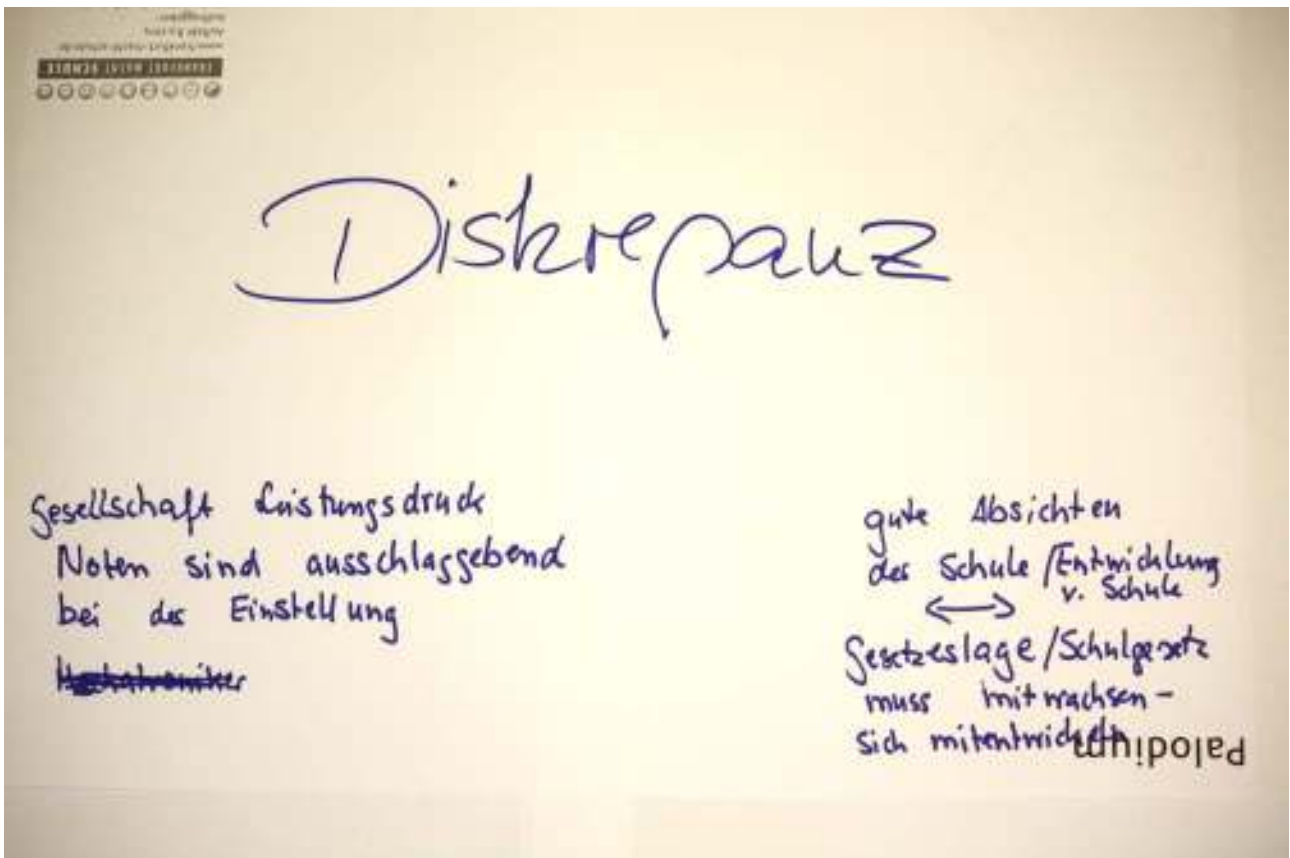 FRANKFURT MACHT SCHULE
Diskrepanz
Gesellschaft Leistungsdruck
Noten sind ausschlaggebend
bei der Einstellung
gute Absichten
der Schule / Entwicklung
v. Schule
Gesetzeslage/Schulgesetz
muss mitwachsen –
sich mitentwickeln
Palodium